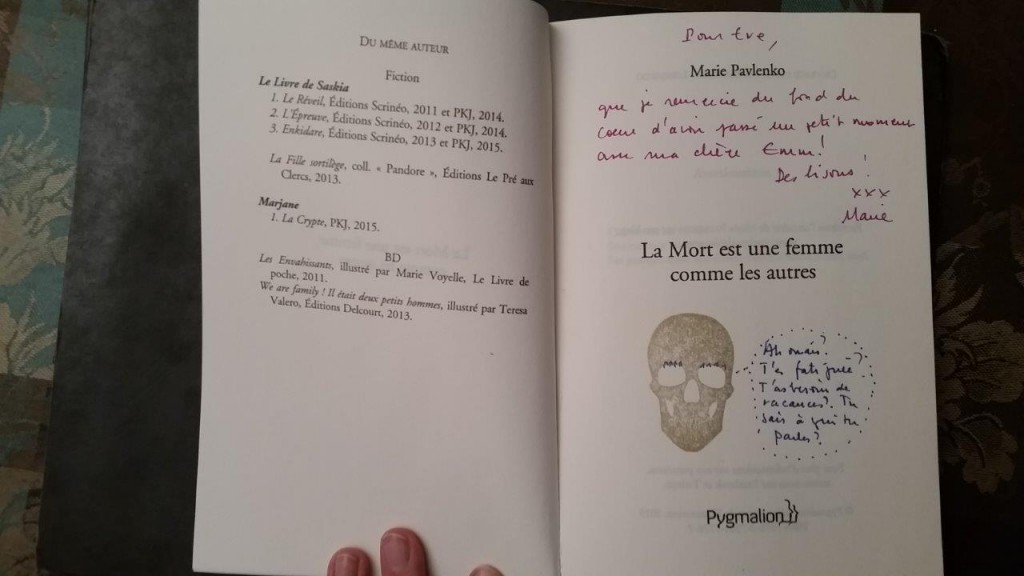 DU MÊME AUTEUR
Fiction
Le Livre de Saskia
1. Le Réveil, Éditions Scrinéo, 2011 et PKJ, 2014.
2. L'Épreuve, Éditions Scrinéo, 2012 et PKJ, 2014.
3. Enkidare, Éditions Scrinéo, 2013 et PKJ, 2015.
La Fille sortilège, coll. « Pandore », Éditions Le Pré aux
Clercs, 2013.
Marjane
1. La Crypte, PKJ, 2015.
BD
Les Envahissants, illustré par Marie Voyelle, Le Livre de
poche, 2011.
We are family ! Il était deux petits hommes, illustré par Teresa
Valero, Éditions Delcourt, 2013.
Pour Eve,
Marie Pavlenko
que je remercie du fond du
coeur d'avoir passé un petit moment
avec ma chère Emm!
Des bisous!
xxx
Marie
La Mort est une femme
comme les autres
Ah ouais?
T'es fatiguée?
T'as besoin de
vacances? Tu
sais à qui tu
parles?
Pygmalion